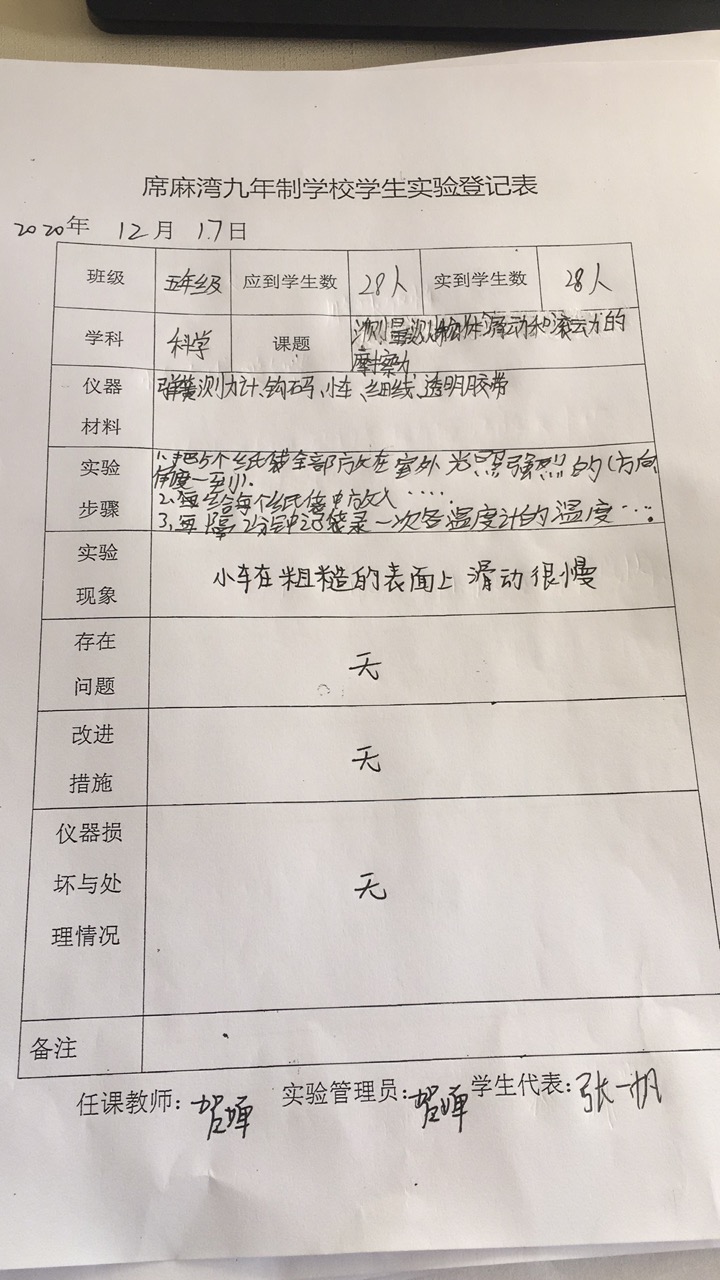 席麻湾九年制学校学生实验登记表
2020年 12月 17日
班级 五年级 应到学生数 28人 实到学生数 28人
学科 科学 课题 测量测物体滑动和滚动的
摩擦力
仪器 弹簧测力计、钩码、小车、细线、透明胶带
材料
实验 1、把5个纸袋全部放在室外光照强烈的(方向
角度一至).
步骤 2、每给每个纸袋中放入……
3、每隔2分钟记录一次各温度计的温度…。
实验 小车在粗糙的表面上滑动很慢
现象
存在 无
问题
改进 无
措施
仪器损
坏与处 无
理情况
备注
任课教师: 实验管理员: 学生代表:张一帆